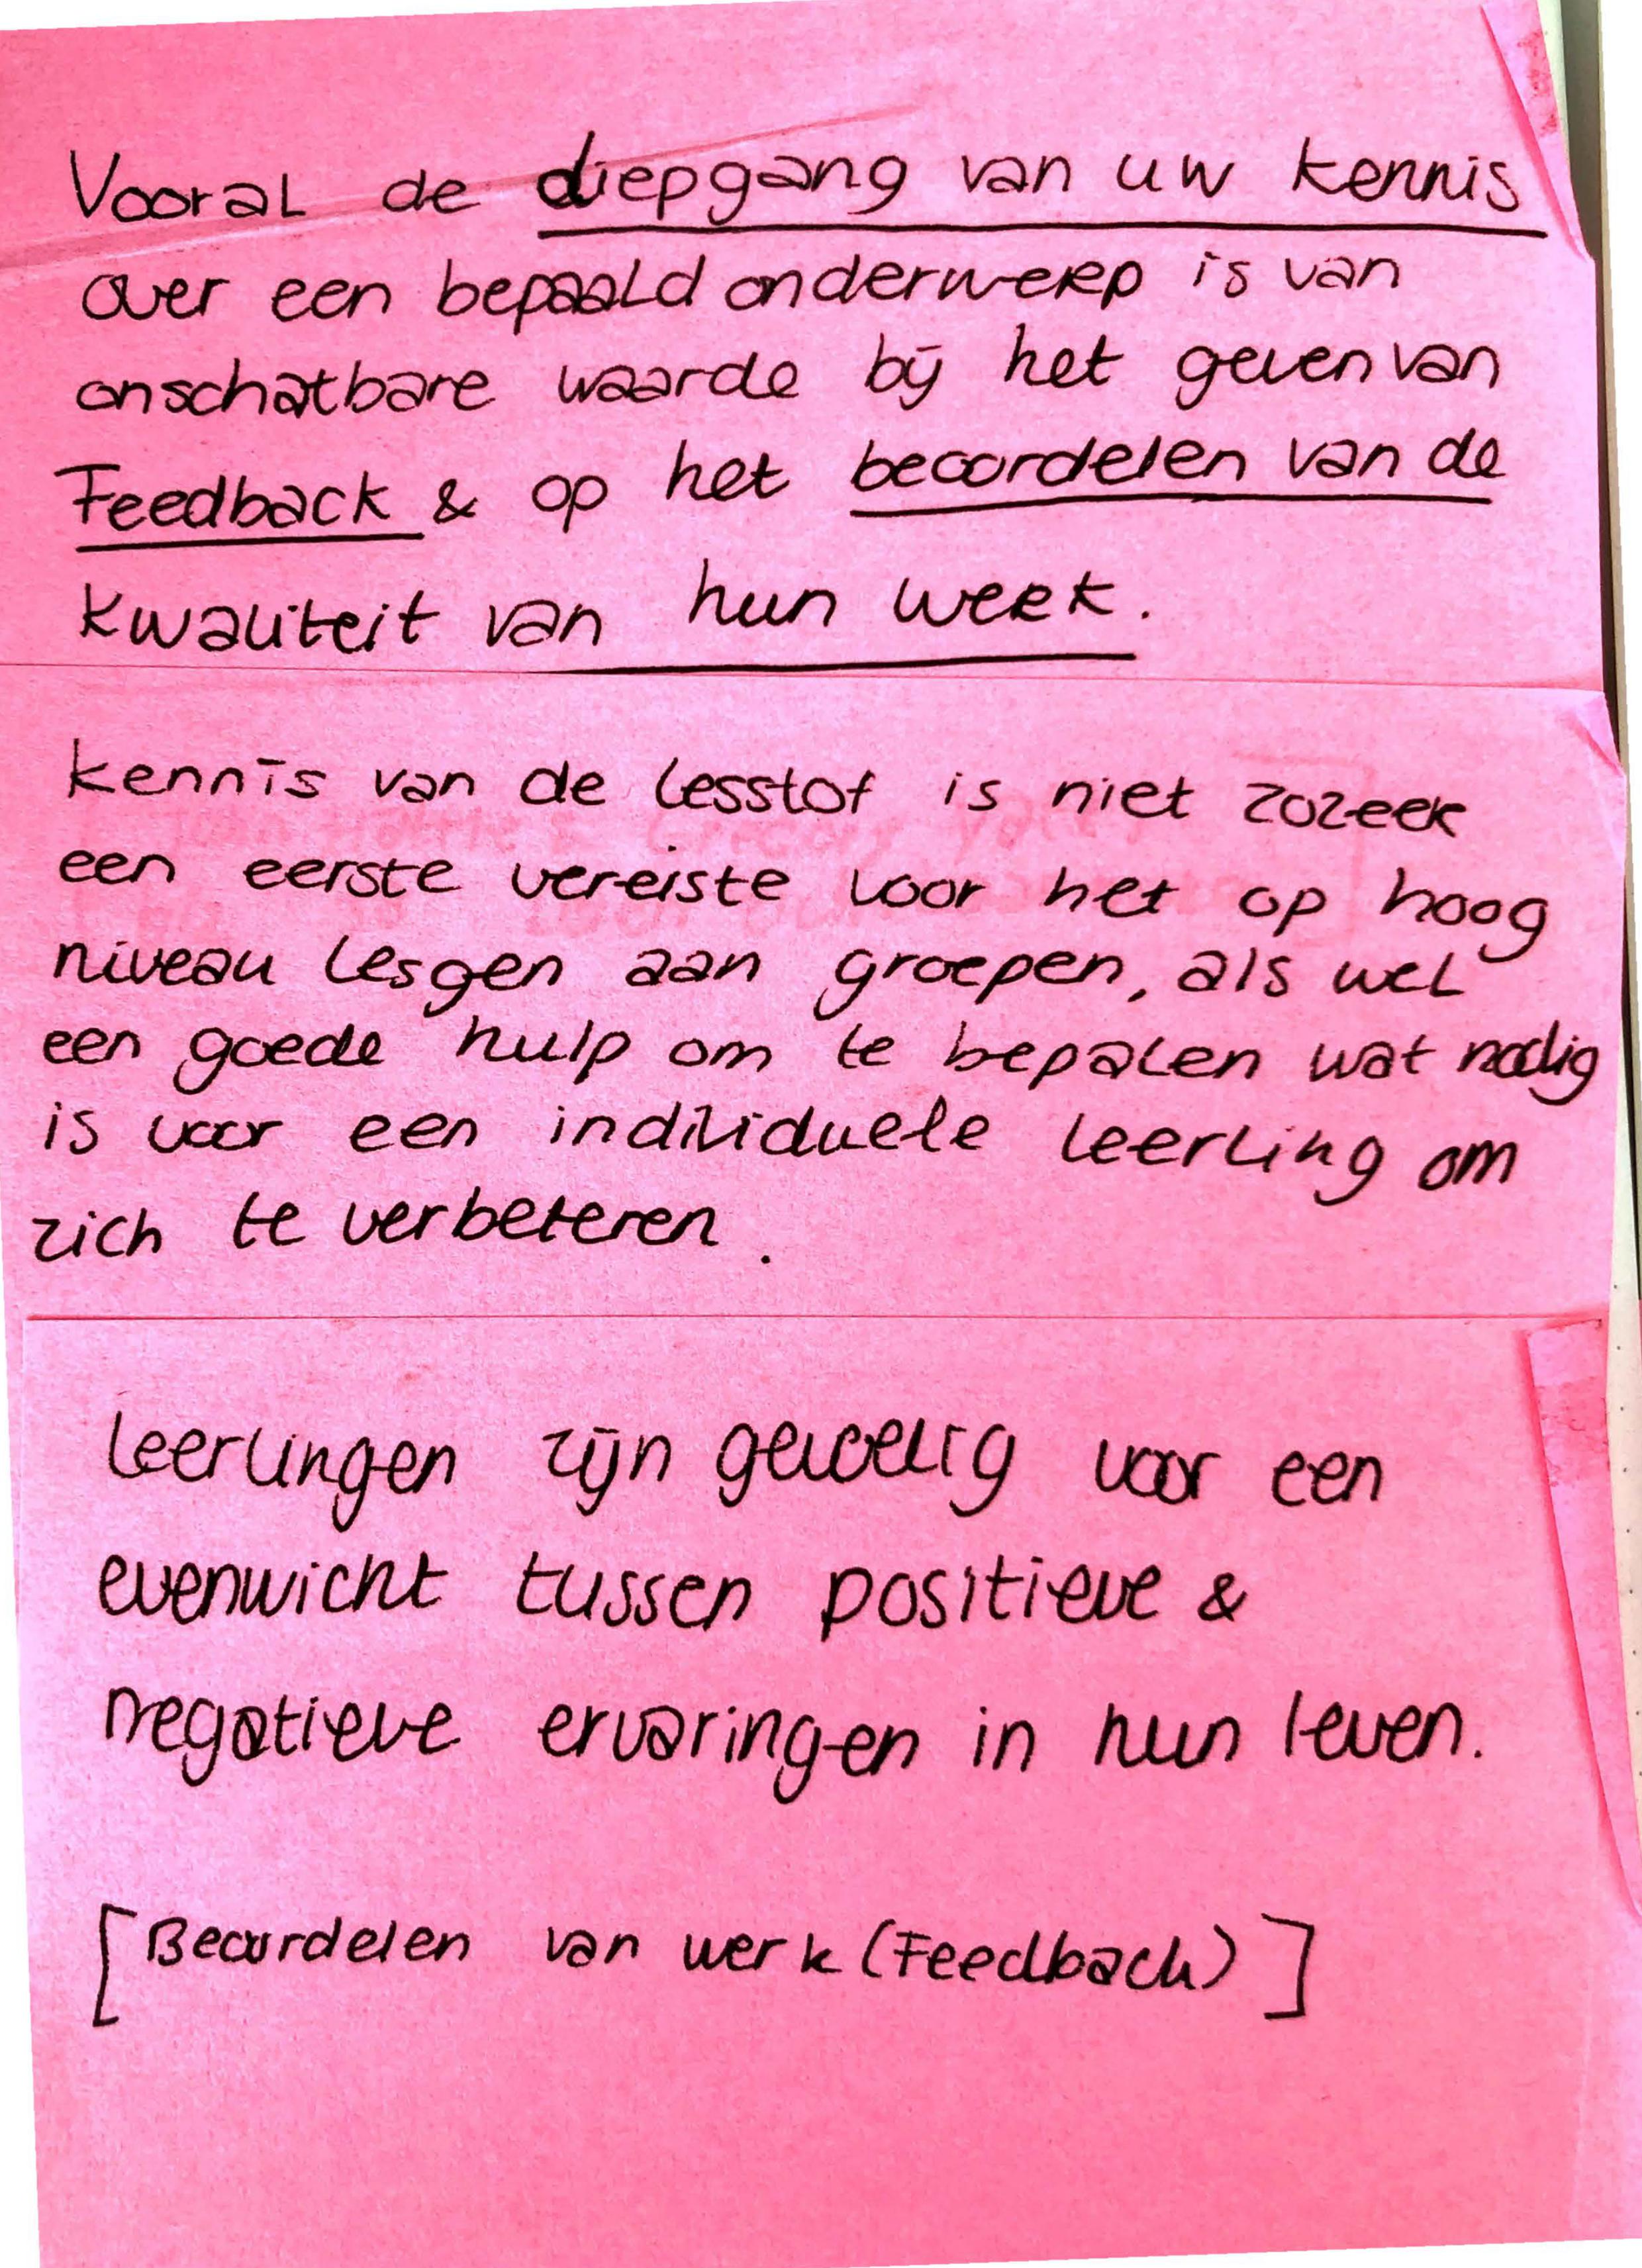 Vooral de diepgang van uw kennis
over een bepaald onderwerp is van
onschatbare waarde bij het geven van
Feedback & op het beoordelen van de
kwaliteit van hun werk.
kennis van de lesstof is niet zozeer
een eerste vereiste voor het op hoog
niveau lesgen aan groepen, als wel
een goede hulp om te bepalen wat nodig
is voor een individuele leerling om
zich te verbeteren.
leerlingen zijn gevoelig voor een
evenwicht tussen positieve &
negatieve ervaringen in hun leven.
[Beoordelen van werk (Feedback)]